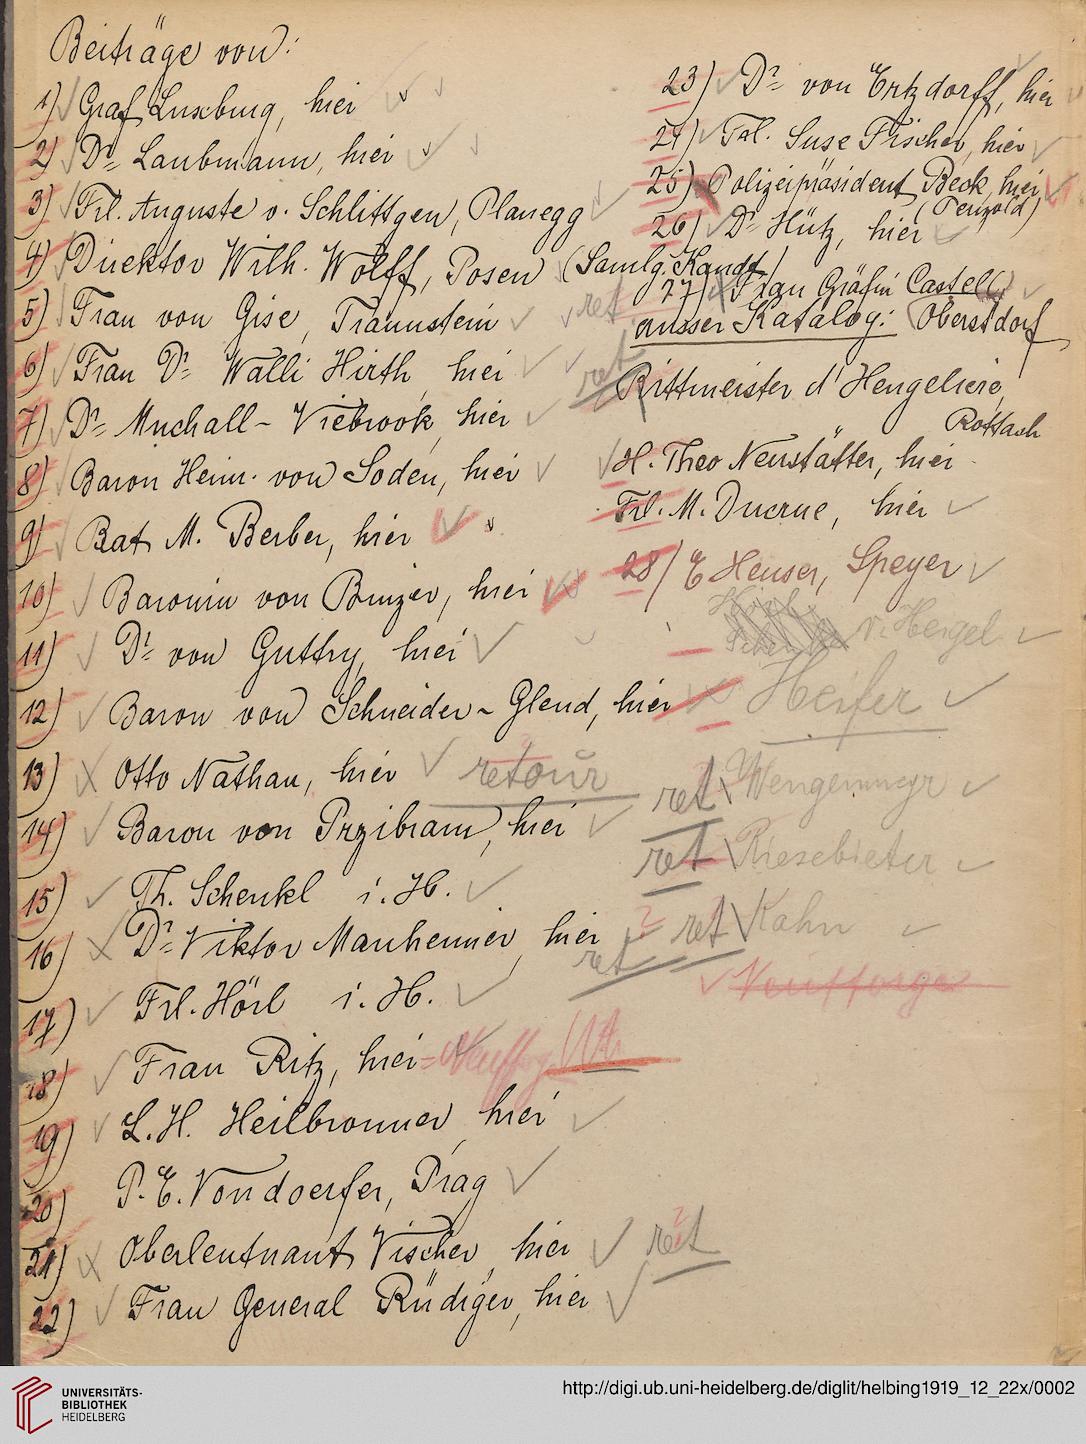 Beiträge von:
1) Graf Luxburg, hier
2) Dr. Laubmann, hier
3) Frl. Auguste v. Schlittgen, Planegg
4) Direktor Wilh. Wolff, Posen (Samlg. Kandt)
5) Frau von Gise, Traunstein
ret
6) Frau Dr. Walli Hirth, hier
ret
7) Dr. Muchall-Viebrook, hier
8) Baron Heinr. von Soden, hier
9) Rat M. Berber, hier
10) Baronin von Binzer, hier
11) Dr. von Guttry, hier
12) Baron von Schneider-Glend, hier
13) Otto Nathan, hier retour
14) Baron von Przibram, hier
15) Th. Schenkl i. H.
16) Dr. Viktor Manheimer, hier
ret
17) Frl. Hörl i. H.
18) Frau Ritz, hier
19) L. H. Heilbronner, hier
20) P. E. Vondoerfer, Prag
21) Oberleutnant Vischer, hier ret
22) Frau General Rüdiger, hier
23) Dr. von Ertzdorff, hier
24) Frl. Suse Fischer, hier
25) Polizeipräsident Beck, hier
(Penzold)
26) Dr. Hütz, hier
27) Frau Gräfin Castell,
Oberstdorf
ausser Katalog:
Rittmeister d'Hengeliere,
Rottach
H. Theo Neustätter, hier
Frl. M. Ducrue, hier
28) E Heuser, Speyer
v. Hergel
Heifer
ret Wengenmayr
ret Riesebieter
ret Kahn
UNIVERSITÄTS-
BIBLIOTHEK
HEIDELBERG
http://digi.ub.uni-heidelberg.de/diglit/helbing1919_12_22x/0002